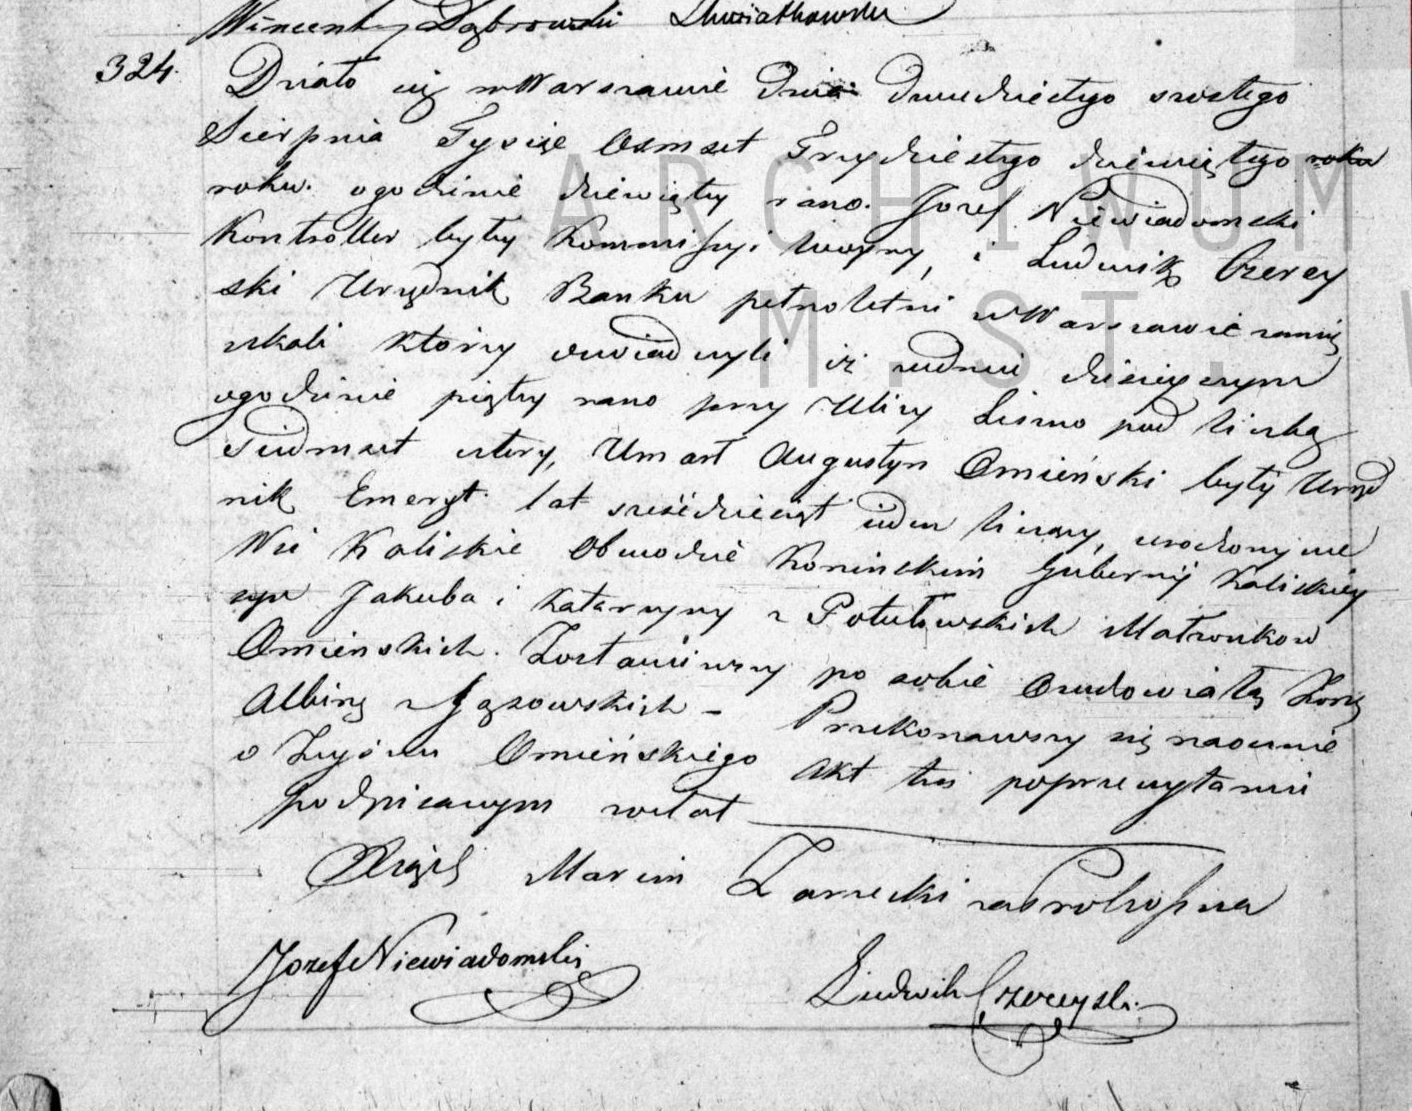 Wincenty Dąbrowski Chwiatkowski
324.
Działo się w Warszawie dnia dwudziestego szustego
Sierpnia Tysiąc Osmset Trzydziestego dziewiątego roku
roku. o godzinie dziewiąty rano. Jozef Niewiadomski
Kontroller były Kommissyi Woyny, i Ludwik Czerey
ski Urzędnik Banku pełnoletni w Warszawie zamię
szkali którzy oswiadczyli iż w dniu dzisieyszym
o godzinie piąty rano przy Ulicy Leszno pod liczbą
siedmset cztery, Umarł Augustyn Omieński były Urzęd
nik Emeryt lat sześćdziesiąt jeden liczący, urodzony we
Wsi Kaliskie Obwodzie Konińskim Gubernij Kaliskiey
syn Jakuba i Katarzyny z Potułowskich Małżonkow
Omieńskich. Zostawiwszy po sobie Owdowiałą żonę
Albinę z Gąsowskich – Przekonawszy się naocznie
o Zeyściu Omieńskiego Akt ten po przeczytaniu
podpisanym został
Xiądz Marcin Zarzecki za Proboszcza
Jozef Niewiadomski
Ludwik Czereyski
ARCHIWUM
M. ST. W